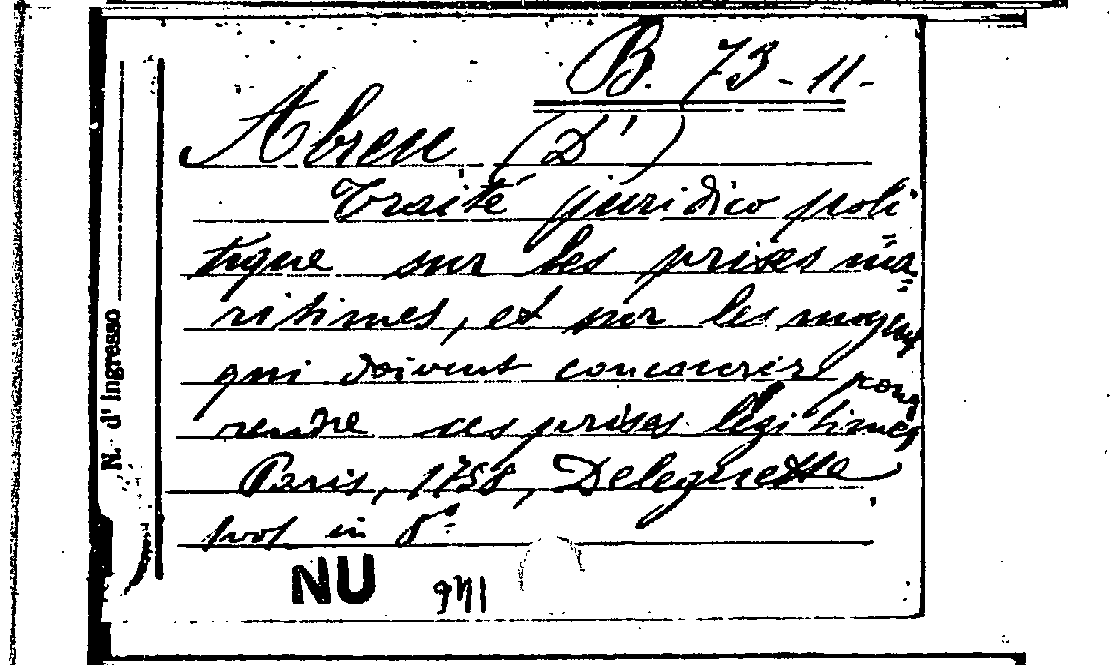 B. 73-11-
Abreu (D')
Traité juridico poli
tique sur les prises ma=
ritimes, et sur les moyens
qui doivent concourir pour
rendre ces prises légitimes
Paris, 1758, Deleguette
vol in 8°=
N. d'Ingresso
NU